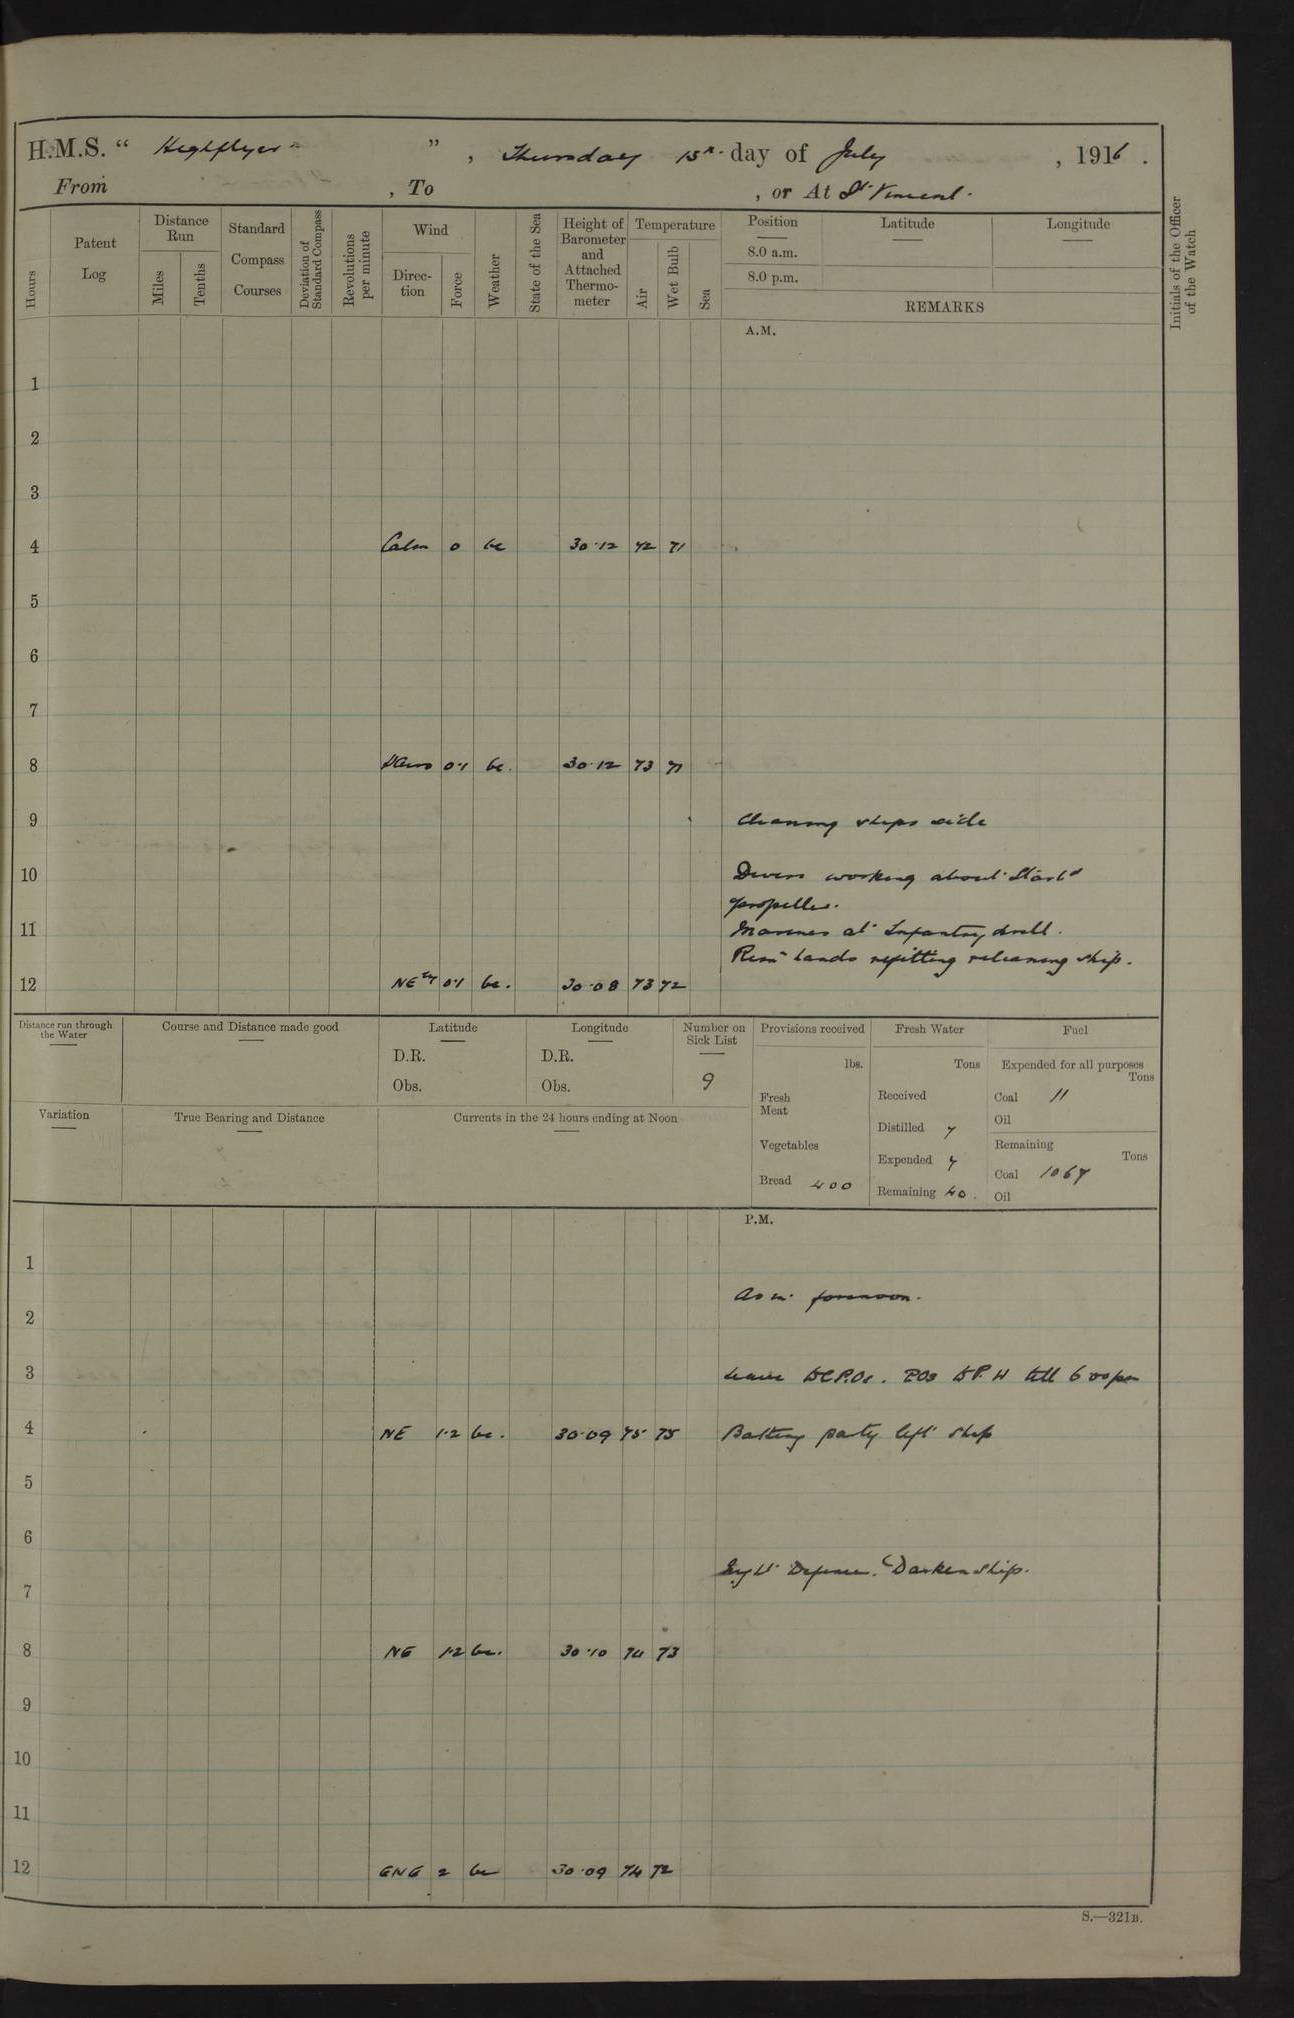 H.M.S. “ Highflyer ” , Thursday 15th day of July , 1916 .
From , To , or At St Vincent.
Hours
Patent Log
Distance Run
Miles
Tenths
Standard Compass Courses
Deviation of Standard Compass
Revolutions per minute
Wind
Direction
Force
Weather
State of the Sea
Height of Barometer and Attached Thermometer
Temperature
Air
Wet Bulb
Sea
Position
Latitude
Longitude
8.0 a.m.
8.0 p.m.
REMARKS
Initials of the Officer of the Watch
A.M.
1
2
3
4 Calm 0 bc 30.12 72 71
5
6
7
8 0.1 bc. 30.12 73 71
9 Cleaning ships side
10 Divers working about Starbd
propeller.
11 Marines at Infantry drill.
Remr hands refitting recleaning ship.
12 NEly 0.1 bc. 30.08 73 72
Distance run through the Water
Course and Distance made good
Latitude
D.R.
Obs.
Longitude
D.R.
Obs.
Number on Sick List
9
Provisions received
lbs.
Fresh Meat
Vegetables
Bread 400
Fresh Water
Tons
Received
Distilled 7
Expended 7
Remaining 40.
Fuel
Expended for all purposes
Tons
Coal 11
Oil
Remaining
Tons
Coal 1067
Oil
Variation
True Bearing and Distance
Currents in the 24 hours ending at Noon
P.M.
1
As in forenoon.
2
3 Leave to C.P.Os. POs to 6 00 pm
4 NE 1.2 bc. 30.09 75 75 Bathing party left ship
5
6
Night Defence. Darken ship.
7
8 NE 1.2 bc. 30.10 74 73
9
10
11
12 ENE 2 bc 30.09 74 72
S.—321B.